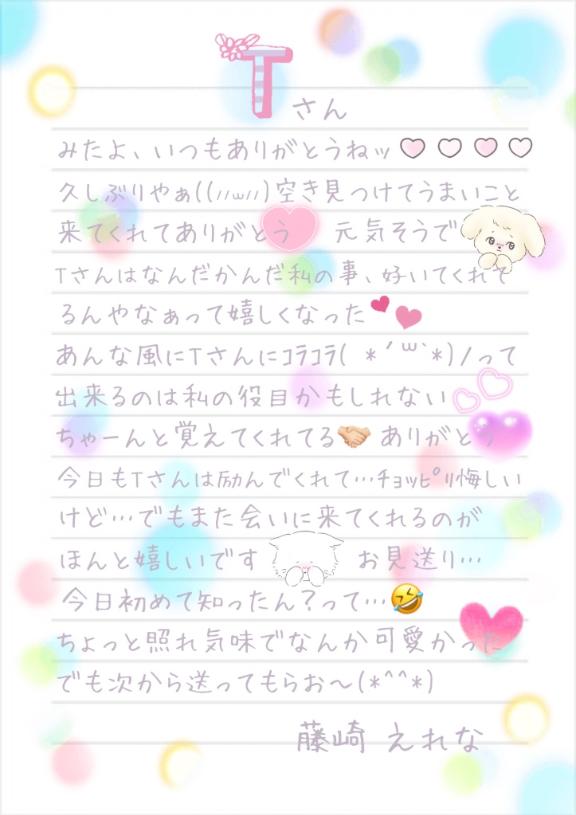 T さん
みたよ、いつもありがとうねッ
久しぶりやぁ((//ω//)空き見つけてうまいこと
来てくれてありがとう 元気そうで
Tさんはなんだかんだ私の事、好いてくれて
るんやなぁって嬉しくなった
あんな風にTさんにコラコラ( *´ω`*)/って
出来るのは私の役目かもしれない
ちゃーんと覚えてくれてる🤝 ありがとう
今日もTさんは励んでくれて…チョッピリ悔しい
けど…でもまた会いに来てくれるのが
ほんと嬉しいです お見送り…
今日初めて知ったん?って…🤣
ちょっと照れ気味でなんか可愛かった
でも次から送ってもらお〜(*^^*)
藤崎 えれな